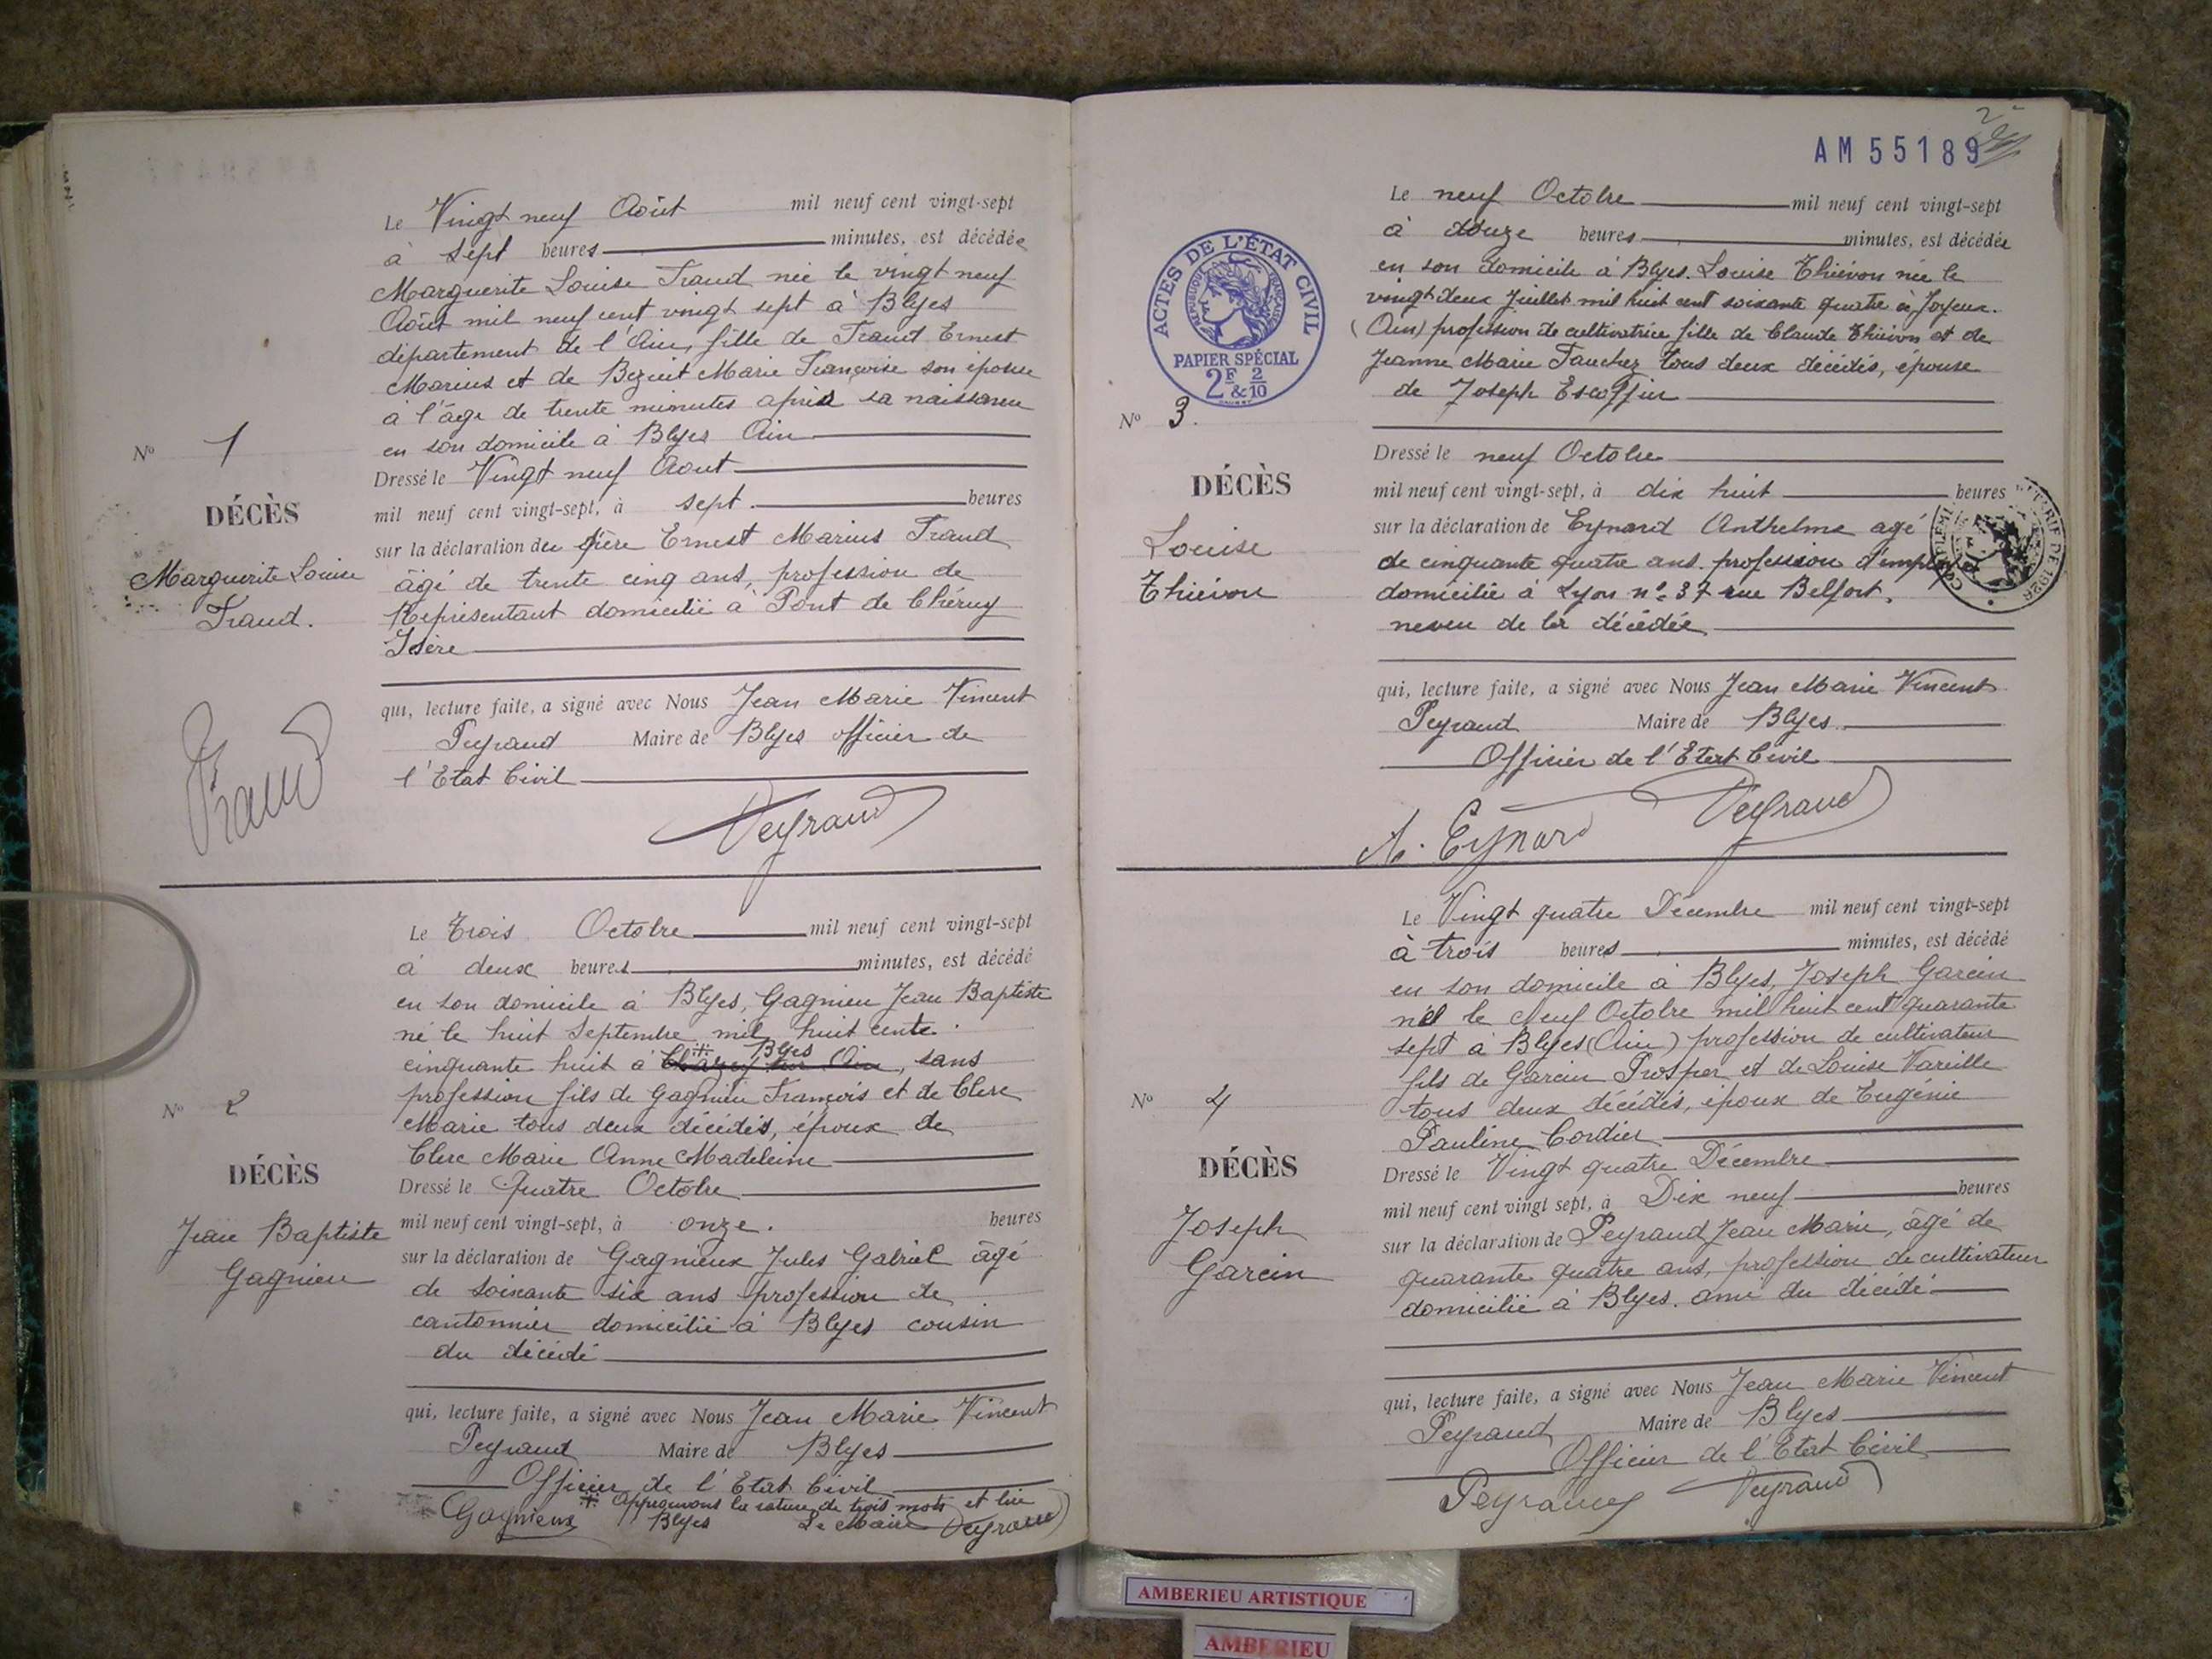 Le Vingt neuf Août mil neuf cent vingt-sept
à sept heures minutes, est décédée
Marguerite Louise Traud née le vingt neuf
Août mil neuf cent vingt sept à Blyes
département de l'Ain, fille de Traud Ernest
Marius et de Marie Françoise son épouse
à l'âge de trente minutes après sa naissance
en son domicile à Blyes Ain
Dressé le Vingt neuf Aout
mil neuf cent vingt-sept, à sept heures
sur la déclaration du père Ernest Marius Traud
âgé de trente cinq ans, profession de
Représentant domicilié à Pont de Chéruy
Isère
qui, lecture faite, a signé avec Nous Jean Marie Vincent
Peyraud Maire de Blyes officier de
l'Etat Civil
Nº 1
DÉCÈS
Marguerite Louise
Traud.
Traud
Peyraud
Le Trois Octobre mil neuf cent vingt-sept
à deux heures minutes, est décédé
en son domicile à Blyes, Gagnieu Jean Baptiste
né le huit Septembre mil huit cent
cinquante huit à Blyes, sans
profession fils de Gagnieu François et de Clerc
Marie tous deux décédés, époux de
Clerc Marie Anne Madeleine
Dressé le Quatre Octobre
mil neuf cent vingt-sept, à onze. heures
sur la déclaration de Gagnieux Jules Gabriel âgé
de soixante six ans profession de
cantonnier domicilié à Blyes cousin
du décédé
qui, lecture faite, a signé avec Nous Jean Marie Vincent
Peyraud Maire de Blyes
Officier de l'Etat Civil
Approuvons la rature de trois mots et lire
Blyes Le Maire Peyraud
Gagnieux
Nº 2
DÉCÈS
Jean Baptiste
Gagnieu
AM 55189
ACTES DE L'ÉTAT CIVIL
RÉPUBLIQUE FRANÇAISE
PAPIER SPÉCIAL
2F & 2/10
Le neuf Octobre mil neuf cent vingt-sept
à douze heures minutes, est décédée
en son domicile à Blyes. Louise Thiévon née le
vingt deux Juillet mil huit cent soixante quatre à Joyeux.
(Ain) profession de cultivatrice fille de Claude Thiévon et de
Jeanne Marie tous deux décédés, épouse
de Joseph Escoffier
Dressé le neuf Octobre
mil neuf cent vingt-sept, à dix huit heures
sur la déclaration de Eynard Anthelme agé
de cinquante quatre ans. profession d'employé
domicilié à Lyon nº 37 rue Belfort,
neveu de la décédée
qui, lecture faite, a signé avec Nous Jean Marie Vincent
Peyraud Maire de Blyes
Officier de l'Etat Civil
A. Eynard Peyraud
Nº 3.
DÉCÈS
Louise
Thiévon
DE 1926
Le Vingt quatre Décembre mil neuf cent vingt-sept
à trois heures minutes, est décédé
en son domicile à Blyes, Joseph Garcin
né le Neuf Octobre mil huit cent quarante
sept à Blyes (Ain) profession de cultivateur
fils de Garcin Prosper et de Louise Vareille
tous deux décédés, époux de Eugénie
Pauline Cordier
Dressé le Vingt quatre Décembre
mil neuf cent vingt sept, à Dix neuf heures
sur la déclaration de Peyraud Jean Marie, âgé de
quarante quatre ans, profession de cultivateur
domicilié à Blyes. ami du décédé
qui, lecture faite, a signé avec Nous Jean Marie Vincent
Peyraud Maire de Blyes
Officier de l'Etat Civil
Peyraud Peyraud
Nº 4
DÉCÈS
Joseph
Garcin
AMBERIEU ARTISTIQUE
AMBERIEU